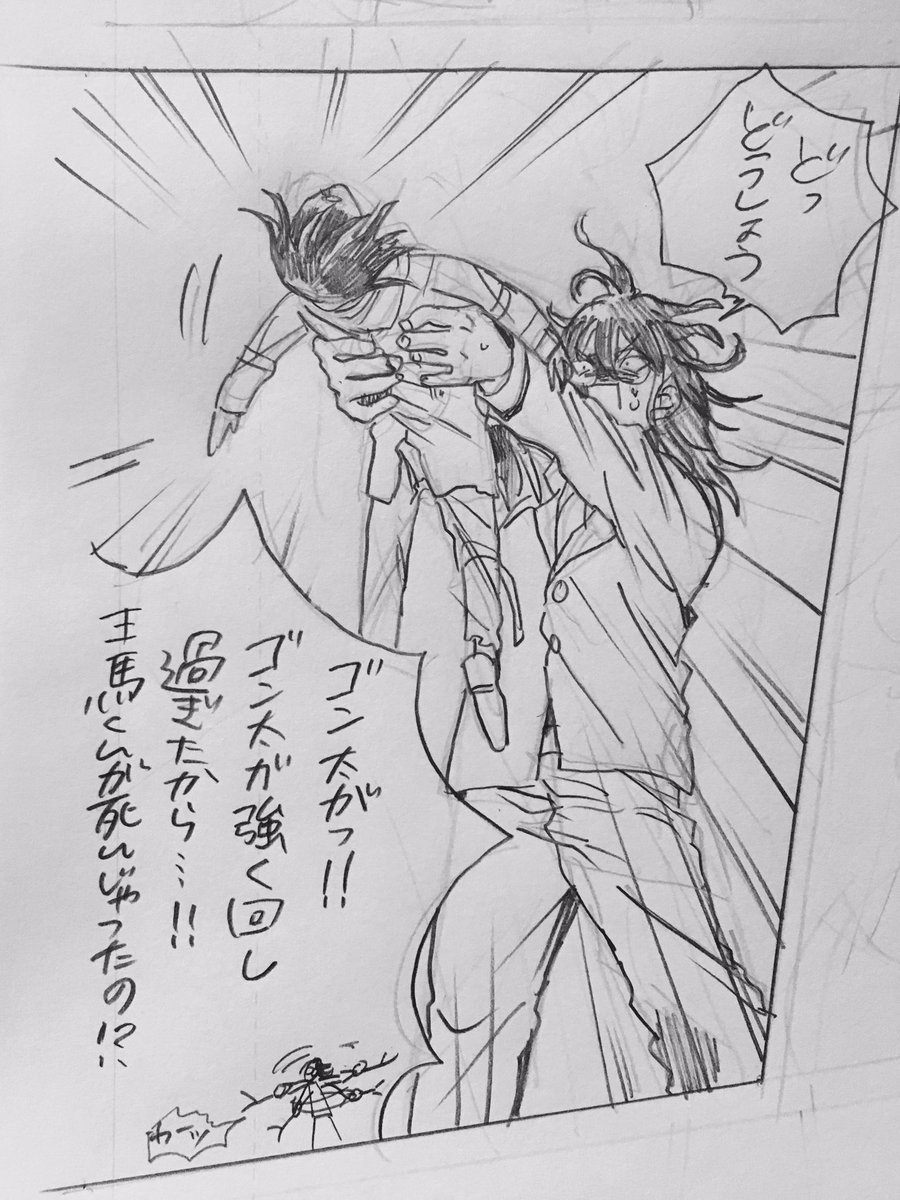 どっ
どうしよう
ゴン太がっ!!
ゴン太が強く回し
過ぎたから…!!
王馬くんが死んじゃったの!?
わーッ